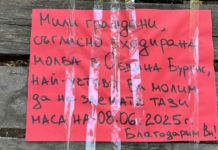 Мили граждани,
съгласно входирана
молба в Община Бургас,
най-учтиво Ви молим
да не заемате тази
маса на 08.06.2025г.
Благодарим Ви!